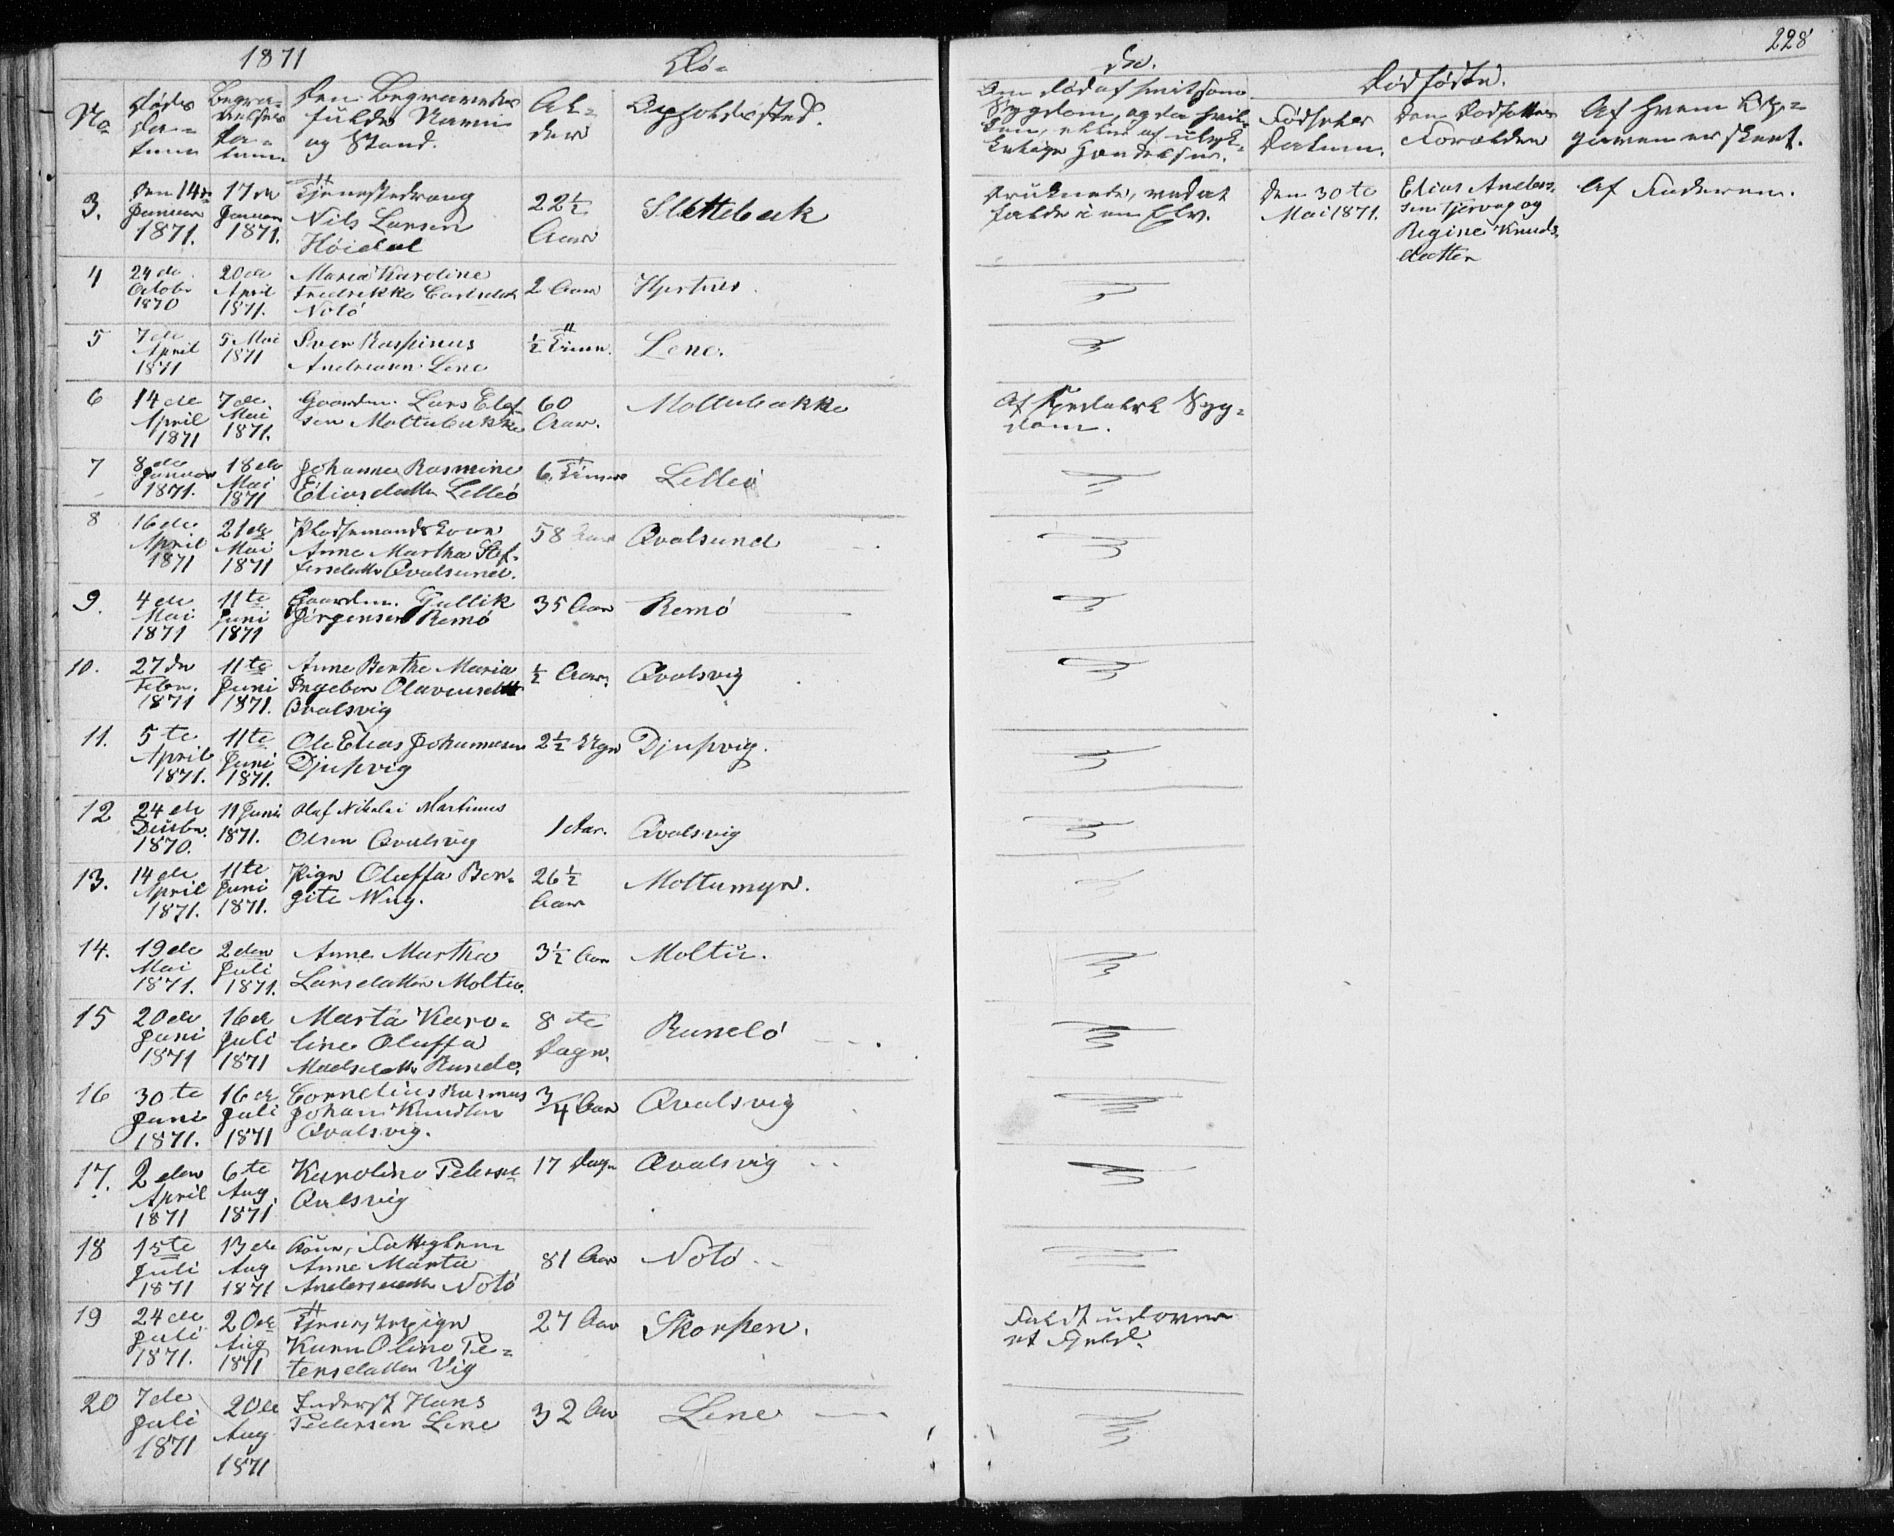 1871
Dö-
de.
228
Dødfødte.
No
Döds
Da-
tum
Begra-
velses
Da-
tum
Den Begravedes
fulde Navn
og Stand.
Al-
der
Opholdssted.
Om Död af smitsom
Sygdom, og da hvil-
ken, eller af ulyk-
kelige Hændelser.
Födsels
Datum.
Den Dødföttes
Forældre
Af hvem Op-
gaven er skeet.
3.
Den 14de
Januar
1871.
17de
Januar
1871.
Tjenestedreng
Nils Larsen
Höidal
22½
Aar
Slettebak
Druknede, ved at
falde i en Elv.
Den 30te
Mai 1871.
Elias Anders.
sen Tjervaag og
Regine Knuds.
datter
Af Faderen.
4
24de
Octobr
1870
20de
April
1871.
Maria Karoline
Fredrikke Carlsdatt
Notö
2 Aar
Hjertnes
5
7de
April
1871
5 Mai
1871
Iver Raspinus
Andreasen Lene
½ Time.
Lene.
6
14de
April
1871
7de
Mai
1871.
Gaardm. Lars Elef-
sen Moltubakke
60
Aar.
Moltubakke
Af Spedalsk Syg-
dom.
7
8de
Januar
1871.
18de
Mai
1871
Johanne Rasmine
Eliasdatter Lelleö
6 Timer
Lelleö
8
16de
April
1871
21de
Mai
1871
Plodsemandskone
Anne Martha Stef-
fensdatter Qvalsund.
58 Aar
Qvalsund
9.
4de
Mai
1871
11te
Juni
1871
Gaardm. Gullik
Jörgensen Remö
35 Aar
Remö
10.
27de
Febr.
1871
11te
Juni
1871.
Anne Berthe Maria
Ingebor Olavensdatt
Qvalsvig
½ Aar.
Qvalsvig
11.
5te
April
1871.
11te
Juni
1871.
Ole Elias Johannesen
Djupvig
2½ Uger
Djupvig.
12
24de
Decbr.
1870.
11 Juni
1871.
Olaf Nikolai Martinus
Olsen Qvalsvig
1 Aar.
Qvalsvig
13.
14de
April
1871.
11te
Juni
1871.
Pige Oluffa Ber-
gite Wig.
26½
Aar
Moltumyr.
14.
19de
Mai
1871.
2den
Juli
1871.
Anne Martha
Larsdatter Moltu.
3½ Aar
Moltu.
15
20de
Juni
1871
16de
Juli
1871
Marta Karo-
line Oluffa
Madsdatter Runde.
8te
Dage.
Rundö
16
30te
Juni
1871.
16de
Juli
1871
Cornelius Rasmus
Johan Knudsen
Qvalsvig.
3/4 Aar
Qvalsvig
17.
2den
April
1871
6te
Aug.
1871
Karoline Peters
Qvalsvig
17 Dage
Qvalsvig
18
15te
Juli
1871
13de
Aug
1871
Kone, Fattiglem
Anne Marta
Andersdatter Notö
81 Aar
Notö
19
24de
Juli
1871.
20de
Aug
1871
Tjenestepige
Karn Oline Pe-
tersdatter Vig
27 Aar
Skorpen.
Faldt udover
et Fjeld.
20
7de
Juli
1871
20de
Aug
1871
Inderst Hans
Pedersen Lene
32 Aar
Lene